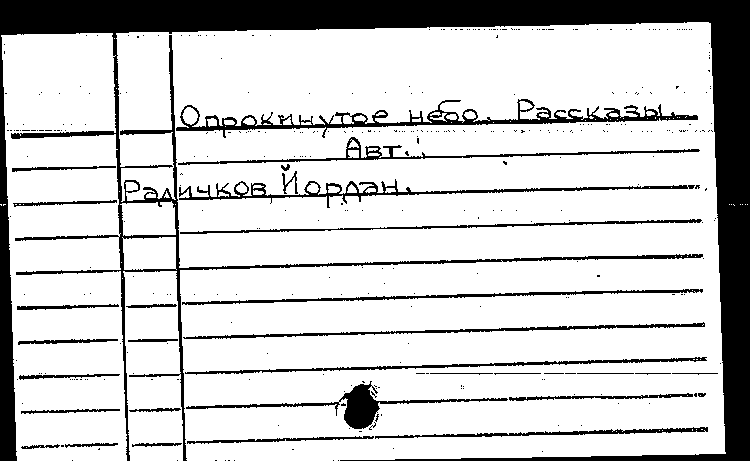 Опрокинутое небо. Рассказы.
Авт.:
Радичков, Йордан.